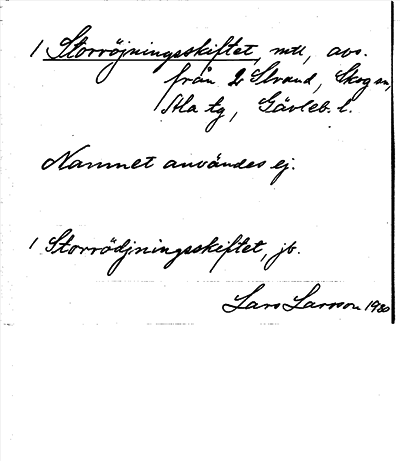 1 Storröjningsskiftet, mtl, avs.
från 2 Strand, Skog sn,
Ala tg, Gävleb. l.
Namnet användes ej.
1 Storrödjningsskiftet, jb.
Lars Larsson 1930